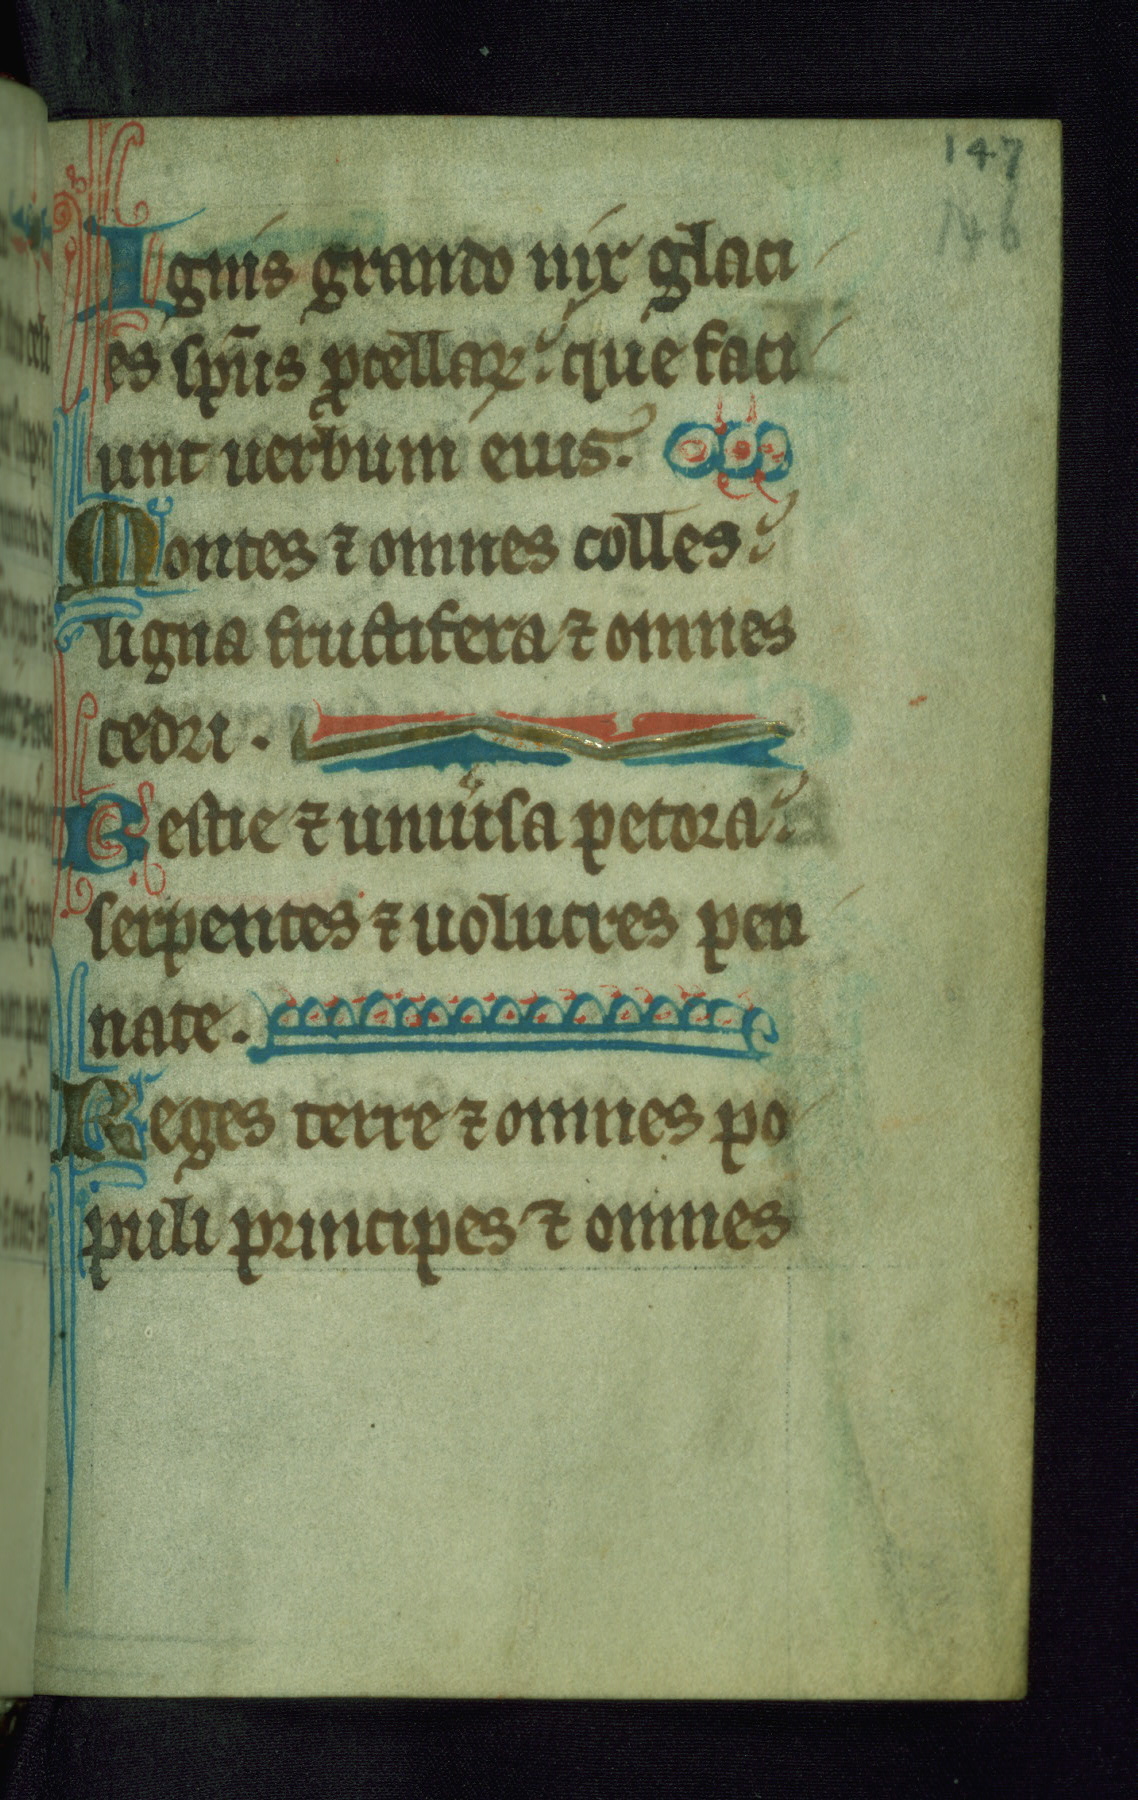 147
146
Ignis grando nix glaci
es sp̄us ꝓcellaꝝ: que faci
unt uerbum eius.
Montes ⁊ omnes colles:
ligna fructifera ⁊ omnes
cedri.
Bestie ⁊ uniu͛sa pecora:
serpentes ⁊ uolucres pen
nate.
Reges terre ⁊ omnes po
puli principes ⁊ omnes